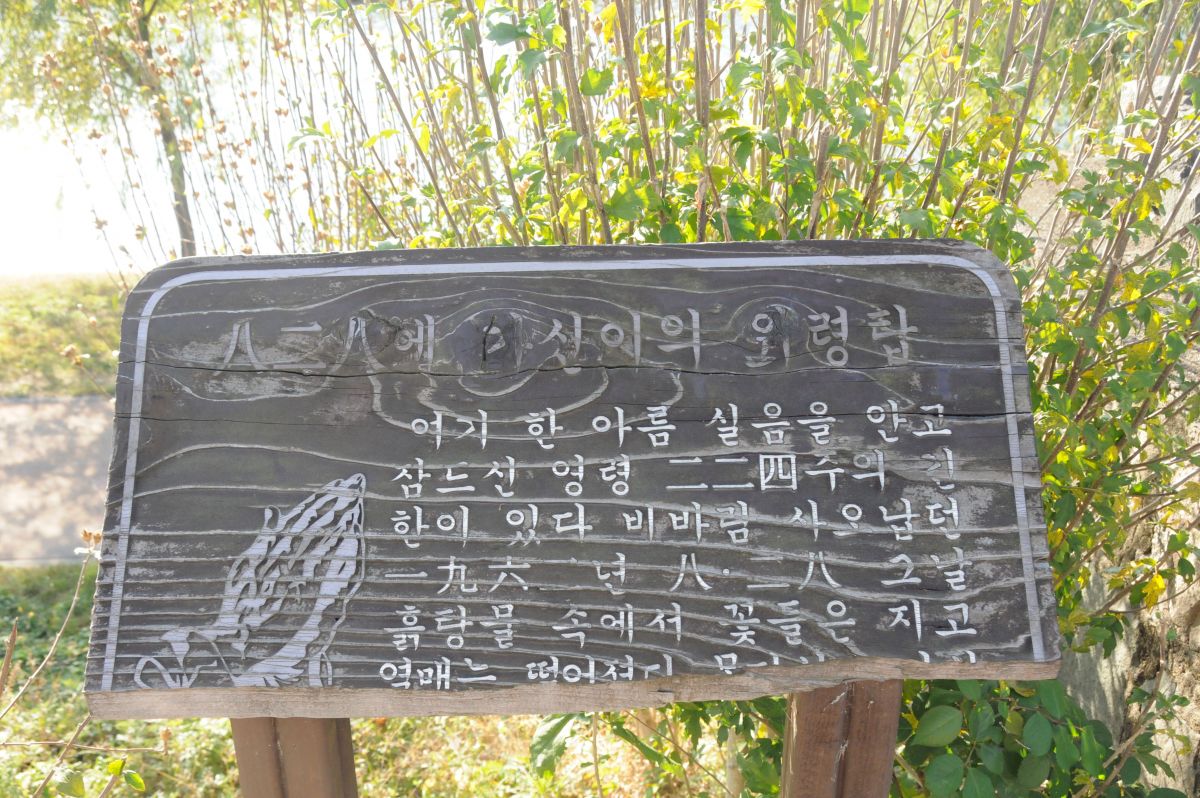 八二八에 위령탑
여기 한 아름 실음을 안고
잠드신 영령 二二四주의 긴
한이 있다 비바람 사오납던
一九六一년 八·二八 그날
흙탕물 속에서 꽃들은 지고
열매는